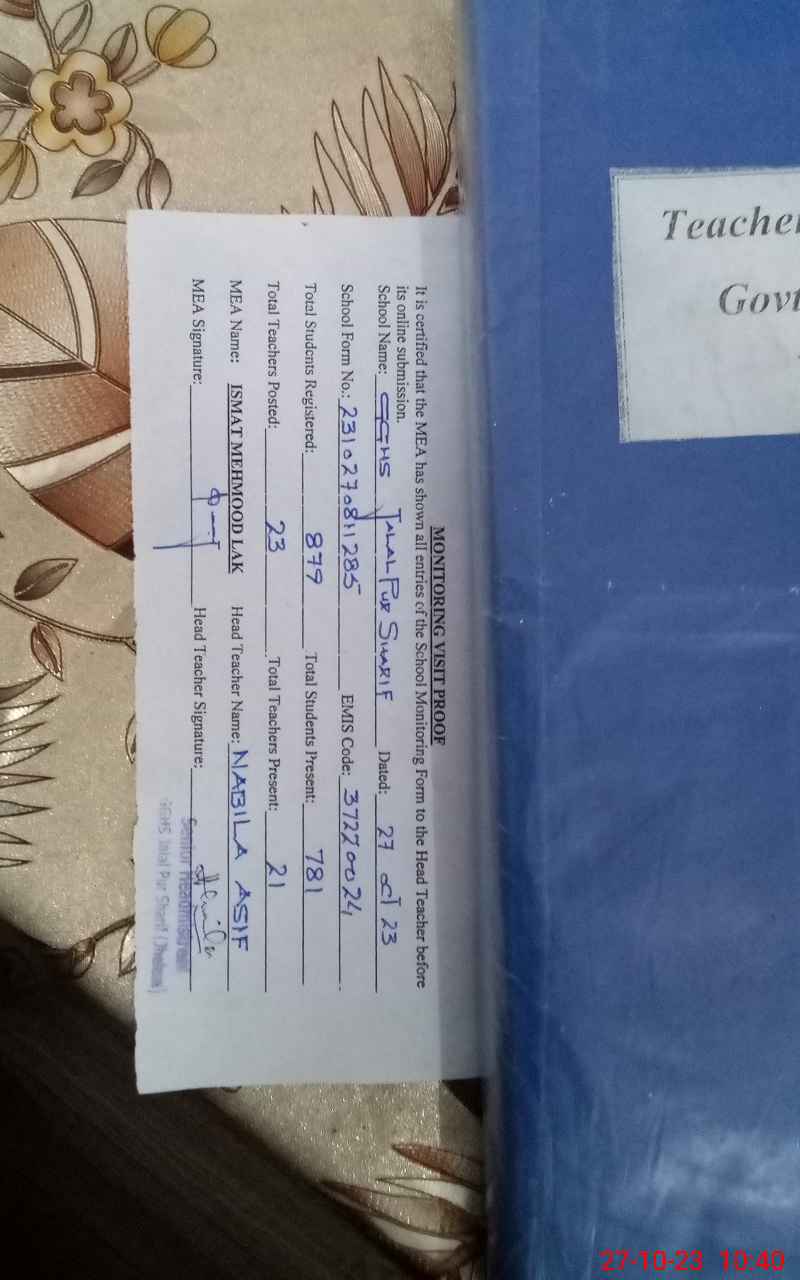 MONITORING VISIT PROOF
It is certified that the MEA has shown all entries of the School Monitoring Form to the Head Teacher before
its online submission.
School Name: GGHS Jalal Pur Sharif Dated: 27 oct 23
School Form No.: 231027081128 5 EMIS Code: 37220024
Total Students Registered: 879 Total Students Present: 781
Total Teachers Posted: 23 Total Teachers Present: 21
MEA Name: ISMAT MEHMOOD LAK Head Teacher Name: NABILA ASIF
MEA Signature: Head Teacher Signature:
Senior Headmistress
GGHS Jalal Pur Sharif (Jhelum)
Teacher
Govt
27-10-23 10:40